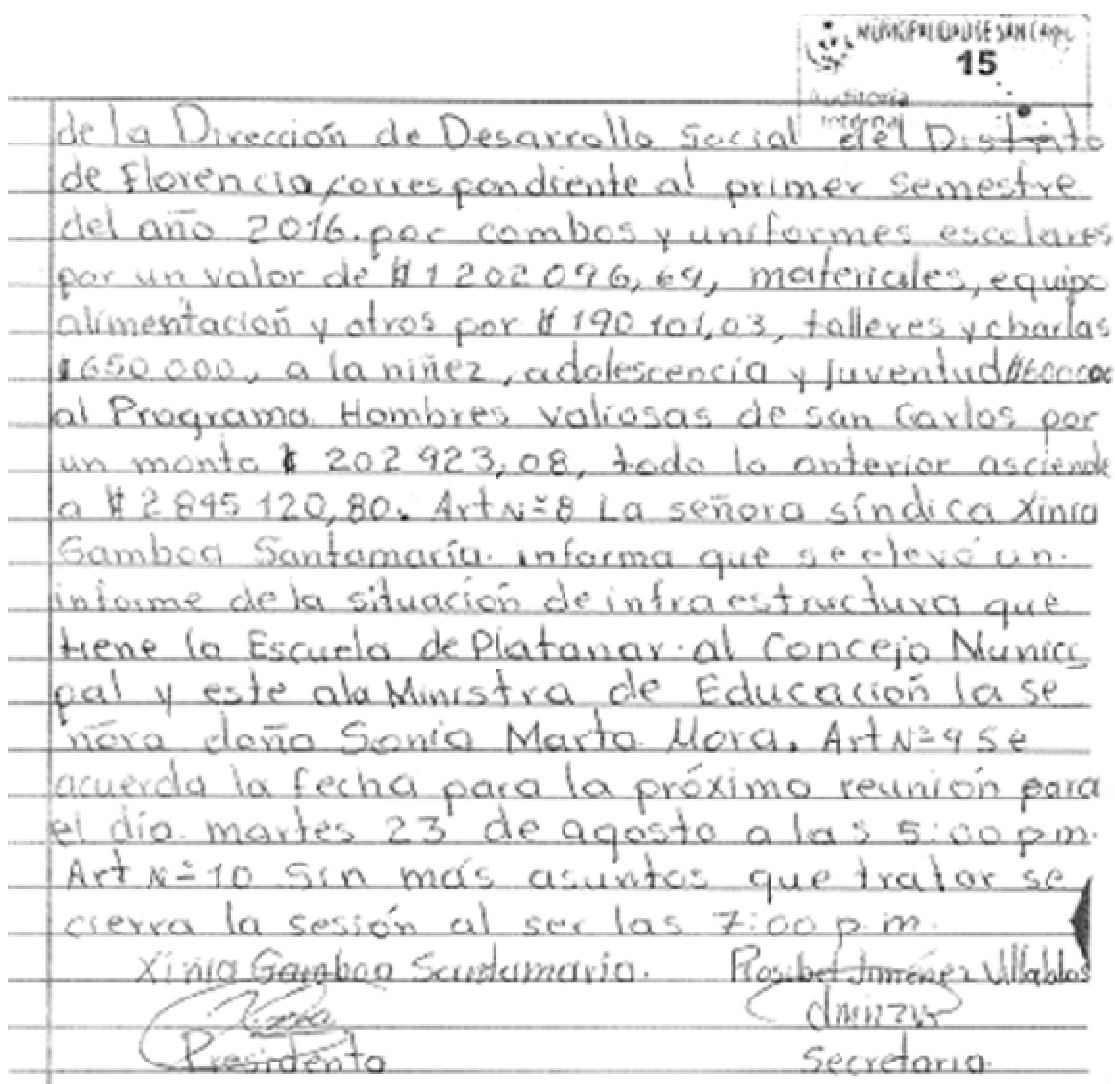 MUNICIPALIDAD DE SAN CARLOS
15
Auditoría
Interna
de la Dirección de Desarrollo Social del Distrito
de Florencia, correspondiente al primer semestre
del año 2016. por combos y uniformes escolares
por un valor de ₡1 202 096,69, materiales, equipo
alimentación y otros por ₡ 190 101,03, talleres y charlas
₡650 000, a la niñez, adolescencia y juventud ₡600000
al Programa Hombres valiosas de san Carlos por
un monto ₡ 202 923,08, todo lo anterior asciende
a ₡ 2 845 120,80. Art Nº8 La señora síndica Xinia
Gamboa Santamaría. informa que se elevó un
informe de la situación de infraestructura que
tiene la Escuela de Platanar al Concejo Munici
pal y este a la Ministra de Educación la se
ñora doña Sonia Marta Mora. Art Nº9 Se
acuerda la fecha para la próxima reunión para
el día martes 23 de agosto a las 5:00 p.m.
Art Nº10 Sin más asuntos que tratar se
cierra la sesión al ser las 7:00 p.m.
Xinia Gamboa Santamaría. Rosibel Jiménez Villalobos
Presidenta Secretaria